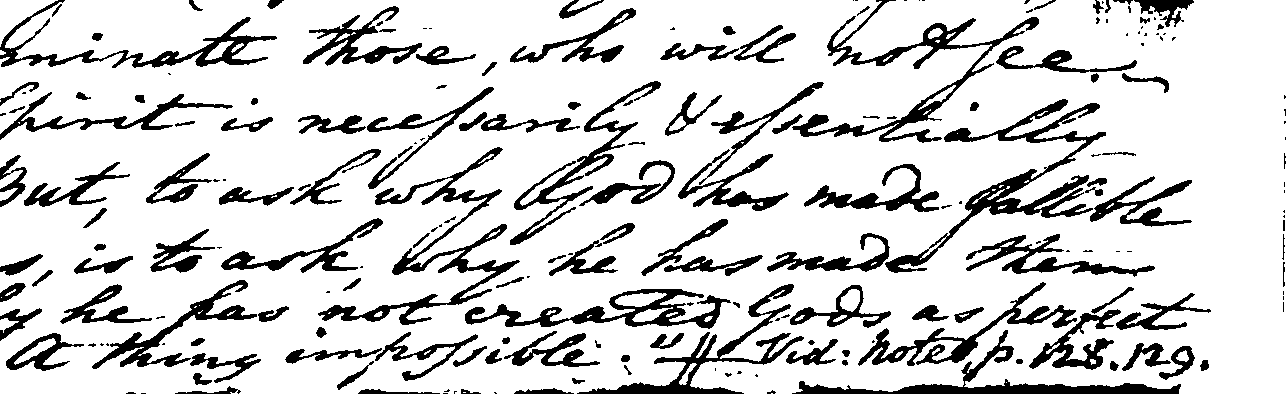 minate those, who will not see.
Spirit is necessarily & essentially
But, to ask why God has made fallible
s, is to ask, why he has made them
y he has not created Gods as perfect
A thing impossible." Vid: Notes, p. 128. 129.